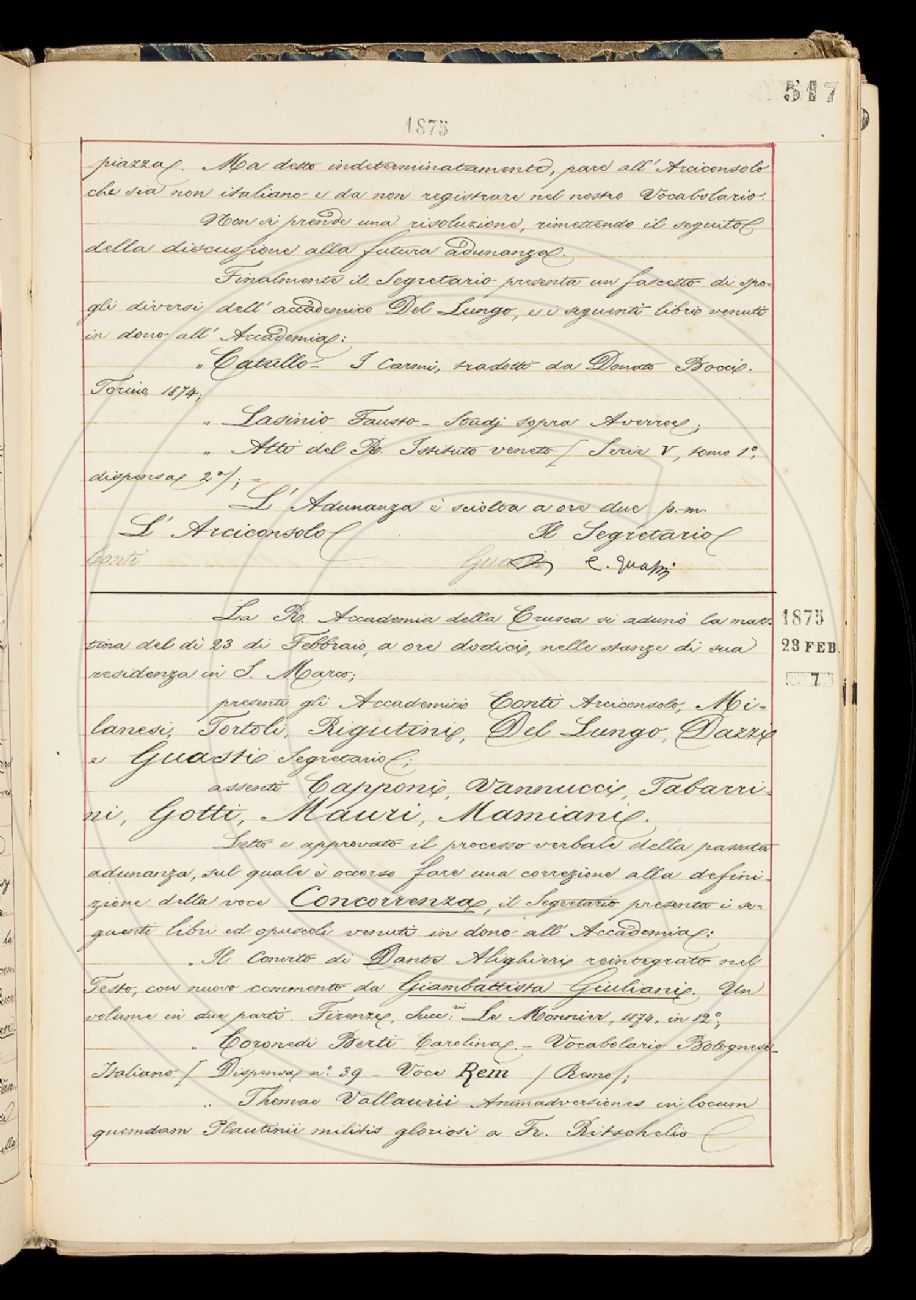 517
1875
piazza. Ma detto indeterminatamente, pare all' Arciconsolo
che sia non italiano e da non registrare nel nostro Vocabolario.
Non si prende una risoluzione, rimettendo il seguito
della discussione alla futura adunanza.
Finalmente il Segretario presenta un fascetto di spo-
gli diversi dell' accademico Del Lungo, e i seguenti libri venuti
in dono all' Accademia:
„ Catullo - I Carmi, tradotti da Donato Bocci.
Torino, 1874;
„ Lasinio Fausto - Studj sopra Averroe;
„ Atti del R. Istituto veneto / Serie V, tomo 1°,
dispensa 2ª/; -
L' Adunanza è sciolta a ore due p.m.
L' Arciconsolo Il Segretario
Conti Guasti C. Guasti
La R. Accademia della Crusca si adunò la mat-
tina del dì 23 di Febbraio, a ore dodici, nelle stanze di sua
residenza in S. Marco;
1875
23 FEB.
7
presenti gli Accademici Conti Arciconsolo, Mi-
lanesi, Tortoli, Rigutini, Del Lungo, Dazzi
e Guasti Segretario;
assenti Capponi, Vannucci, Tabarri-
ni, Gotti, Mauri, Mamiani.
Letto e approvato il processo verbale della passata
adunanza, sul quale è occorso fare una correzione alla defini-
zione della voce Concorrenza, il Segretario presenta i se-
guenti libri ed opuscoli venuti in dono all' Accademia:
„ Il Convito di Dante Alighieri reintegrato nel
Testo, con nuovo commento da Giambattista Giuliani. Un
volume in due parti. Firenze, Succ.ri Le Monnier, 1874, in 12°;
„ Coronedi Berti Carolina. - Vocabolario Bolognese-
Italiano / Dispensa n.° 39 - Voce Rem / Remo/;
„ Thomae Vallaurii Animadversiones in locum
quemdam Plautinii militis gloriosi a Fr. Ritschelio